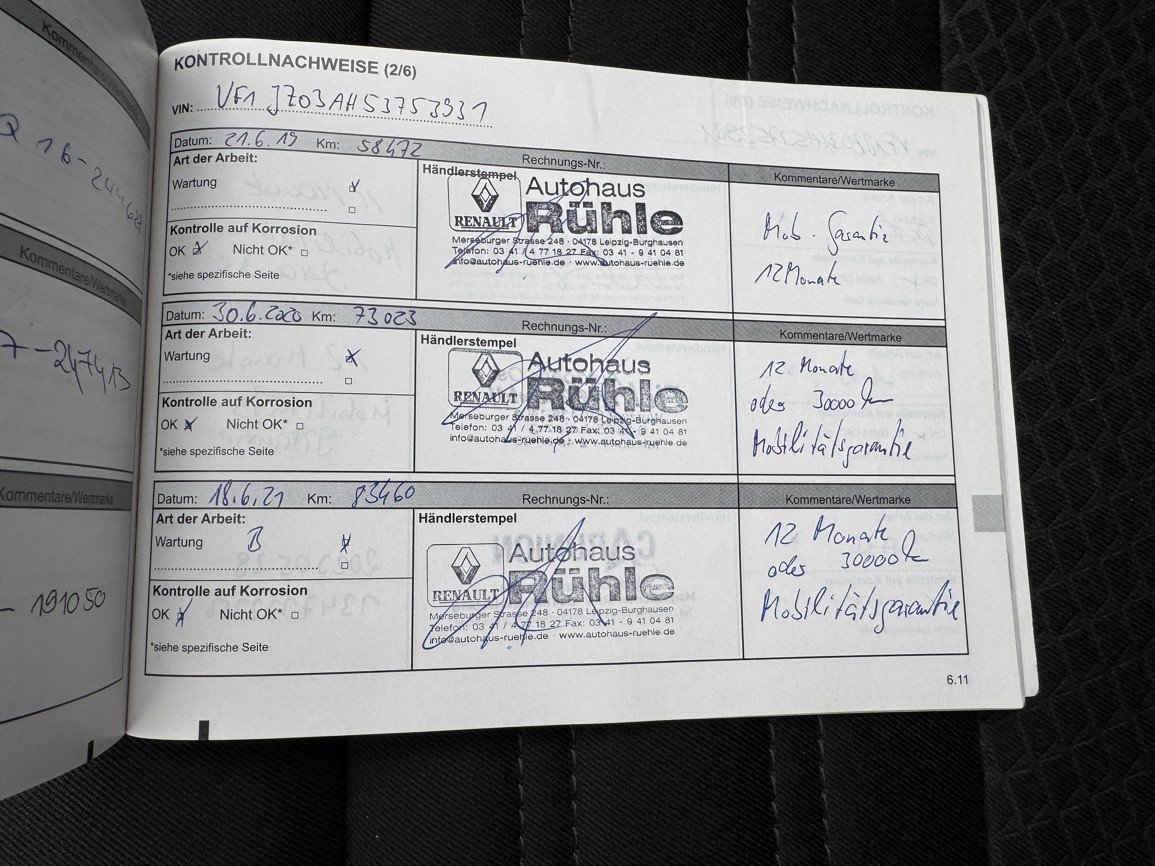 KONTROLLNACHWEISE (2/6)
VIN: VF1 JZ03AH53753931
Datum: 21.6.19 Km: 58472 Rechnungs-Nr.:
Art der Arbeit:
Wartung
Kontrolle auf Korrosion
OK Nicht OK*
*siehe spezifische Seite
Händlerstempel
RENAULT
Autohaus
Rühle
Merseburger Strasse 248 · 04178 Leipzig-Burghausen
Telefon: 03 41 / 4 77 18 27 Fax: 03 41 - 9 41 04 81
info@autohaus-ruehle.de · www.autohaus-ruehle.de
Kommentare/Wertmarke
Mob. Garantie
12 Monate
Datum: 30.6.2020 Km: 73023 Rechnungs-Nr.:
Art der Arbeit:
Wartung
Kontrolle auf Korrosion
OK Nicht OK*
*siehe spezifische Seite
Händlerstempel
RENAULT
Autohaus
Rühle
Merseburger Strasse 248 · 04178 Leipzig-Burghausen
Telefon: 03 41 / 4 77 18 27 Fax: 03 41 - 9 41 04 81
info@autohaus-ruehle.de · www.autohaus-ruehle.de
Kommentare/Wertmarke
12 Monate
oder 30000 km
Mobilitätsgarantie
Datum: 18.6.21 Km: 83460 Rechnungs-Nr.:
Art der Arbeit:
Wartung B
Kontrolle auf Korrosion
OK Nicht OK*
*siehe spezifische Seite
Händlerstempel
RENAULT
Autohaus
Rühle
Merseburger Strasse 248 · 04178 Leipzig-Burghausen
Telefon: 03 41 / 4 77 18 27 Fax: 03 41 - 9 41 04 81
info@autohaus-ruehle.de · www.autohaus-ruehle.de
Kommentare/Wertmarke
12 Monate
oder 30000 km
Mobilitätsgarantie
6.11
Kommentare/Wertmarke
7-247413
Kommentare/Wertmarke
- 191050